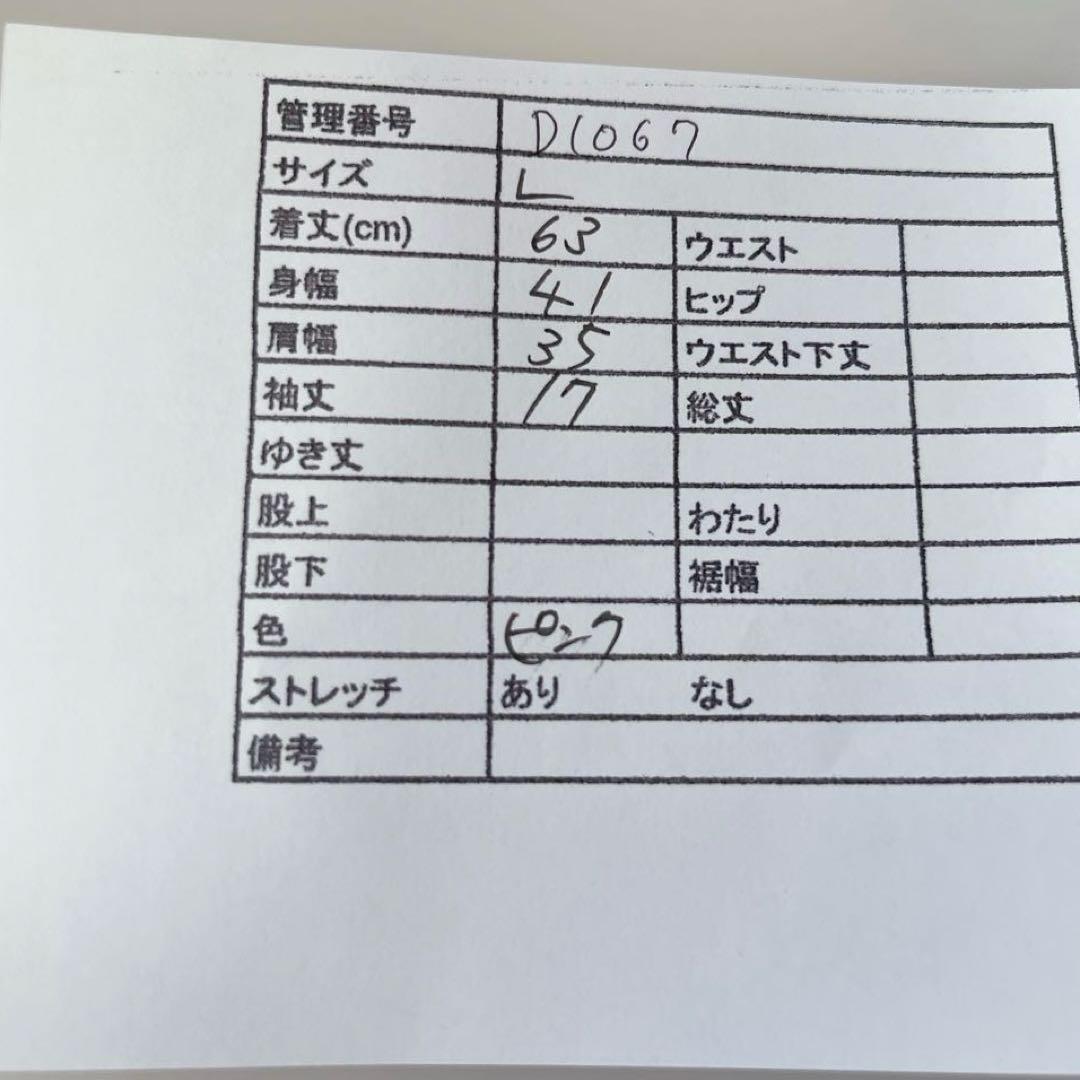 管理番号 D1067
サイズ L
着丈(cm) 63 ウエスト
身幅 41 ヒップ
肩幅 35 ウエスト下丈
袖丈 17 総丈
ゆき丈
股上 わたり
股下 裾幅
色 ピンク
ストレッチ あり なし
備考